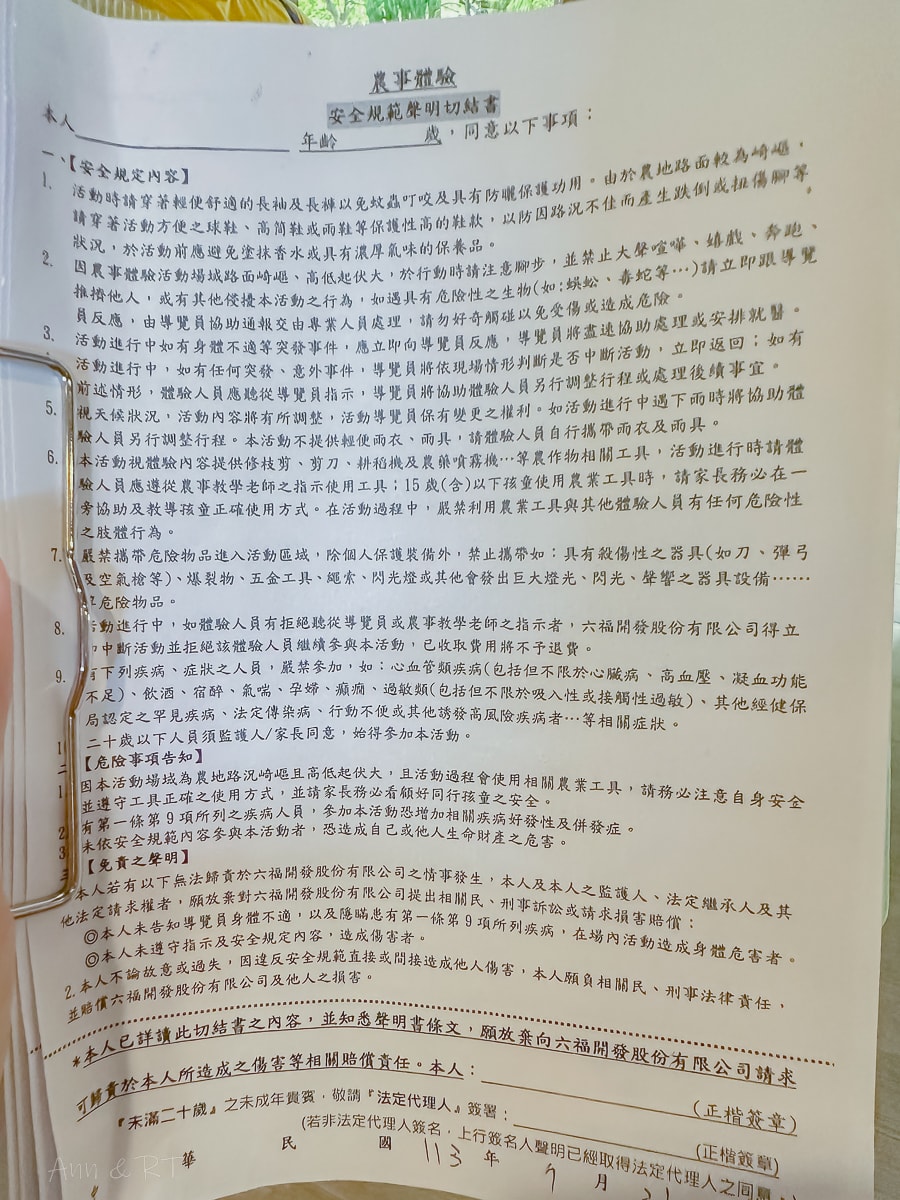 農事體驗
安全規範聲明切結書
本人 年齡 歲，同意以下事項：
一、【安全規定內容】
1. 活動時請穿著輕便舒適的長袖及長褲以免蚊蟲叮咬及具有防曬保護功用。由於農地路面較為崎嶇，
請穿著活動方便之球鞋、高筒鞋或雨鞋等保護性高的鞋款，以防因路況不佳而產生跌倒或扭傷腳等
狀況，於活動前應避免塗抹香水或具有濃厚氣味的保養品。
2. 因農事體驗活動場域路面崎嶇、高低起伏大，於行動時請注意腳步，並禁止大聲喧嘩、嬉戲、奔跑、
推擠他人，或有其他侵擾本活動之行為，如遇具有危險性之生物(如:蜈蚣、毒蛇等…)請立即跟導覽
員反應，由導覽員協助通報交由專業人員處理，請勿好奇觸碰以免受傷或造成危險。
3. 活動進行中如有身體不適等突發事件，應立即向導覽員反應，導覽員將盡速協助處理或安排就醫。
活動進行中，如有任何突發、意外事件，導覽員將依現場情形判斷是否中斷活動，立即返回；如有
前述情形，體驗人員應聽從導覽員指示，導覽員將協助體驗人員另行調整行程或處理後續事宜。
5. 視天候狀況，活動內容將有所調整，活動導覽員保有變更之權利。如活動進行中遇下雨時將協助體
驗人員另行調整行程。本活動不提供輕便雨衣、雨具，請體驗人員自行攜帶雨衣及雨具。
6. 本活動視體驗內容提供修枝剪、剪刀、耕稻機及農藥噴霧機…等農作物相關工具，活動進行時請體
驗人員應遵從農事教學老師之指示使用工具；15歲(含)以下孩童使用農業工具時，請家長務必在一
旁協助及教導孩童正確使用方式。在活動過程中，嚴禁利用農業工具與其他體驗人員有任何危險性
之肢體行為。
7. 嚴禁攜帶危險物品進入活動區域，除個人保護裝備外，禁止攜帶如：具有殺傷性之器具(如刀、彈弓
及空氣槍等)、爆裂物、五金工具、繩索、閃光燈或其他會發出巨大燈光、閃光、聲響之器具設備……
危險物品。
8. 活動進行中，如體驗人員有拒絕聽從導覽員或農事教學老師之指示者，六福開發股份有限公司得立
中斷活動並拒絕該體驗人員繼續參與本活動，已收取費用將不予退費。
9. 有下列疾病、症狀之人員，嚴禁參加，如：心血管類疾病(包括但不限於心臟病、高血壓、凝血功能
不足)、飲酒、宿醉、氣喘、孕婦、癲癇、過敏類(包括但不限於吸入性或接觸性過敏)、其他經健保
局認定之罕見疾病、法定傳染病、行動不便或其他誘發高風險疾病者…等相關症狀。
1 二十歲以下人員須監護人/家長同意，始得參加本活動。
二 【危險事項告知】
1 因本活動場域為農地路況崎嶇且高低起伏大，且活動過程會使用相關農業工具，請務必注意自身安全
並遵守工具正確之使用方式，並請家長務必看顧好同行孩童之安全。
2 有第一條第9項所列之疾病人員，參加本活動恐增加相關疾病好發性及併發症。
3 未依安全規範內容參與本活動者，恐造成自己或他人生命財產之危害。
三 【免責之聲明】
本人若有以下無法歸責於六福開發股份有限公司之情事發生，本人及本人之監護人、法定繼承人及其
他法定請求權者，願放棄對六福開發股份有限公司提出相關民、刑事訴訟或請求損害賠償：
◎本人未告知導覽員身體不適，以及隱瞞患有第一條第9項所列疾病，在場內活動造成身體危害者。
◎本人未遵守指示及安全規定內容，造成傷害者。
2.本人不論故意或過失，因違反安全規範直接或間接造成他人傷害，本人願負相關民、刑事法律責任，
並賠償六福開發股份有限公司及他人之損害。
*本人已詳讀此切結書之內容，並知悉聲明書條文，願放棄向六福開發股份有限公司請求
可歸責於本人所造成之傷害等相關賠償責任。本人： (正楷簽章)
『未滿二十歲』之未成年貴賓，敬請『法定代理人』簽署： (正楷簽章)
(若非法定代理人簽名，上行簽名人聲明已經取得法定代理人之同意
華 民 國 113 年 月
Ann & RT